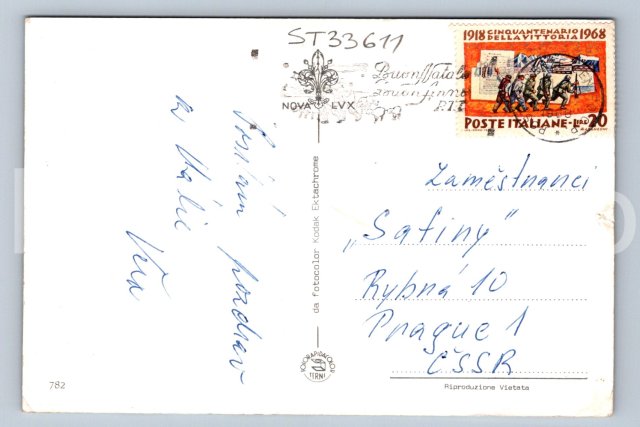 ST33611
1918 CINQUANTENARIO 1968
DELLA VITTORIA
POSTE ITALIANE L. 20
Buon Natale
Buon Anno
P.T.
NOVA LVX
Posílám pozdrav
z Itálie
Věra
Zaměstnanci
„Satiny"
Rybná 10
Prague 1
ČSSR
da fotocolor Kodak Ektachrome
TERNI
782
Riproduzione Vietata